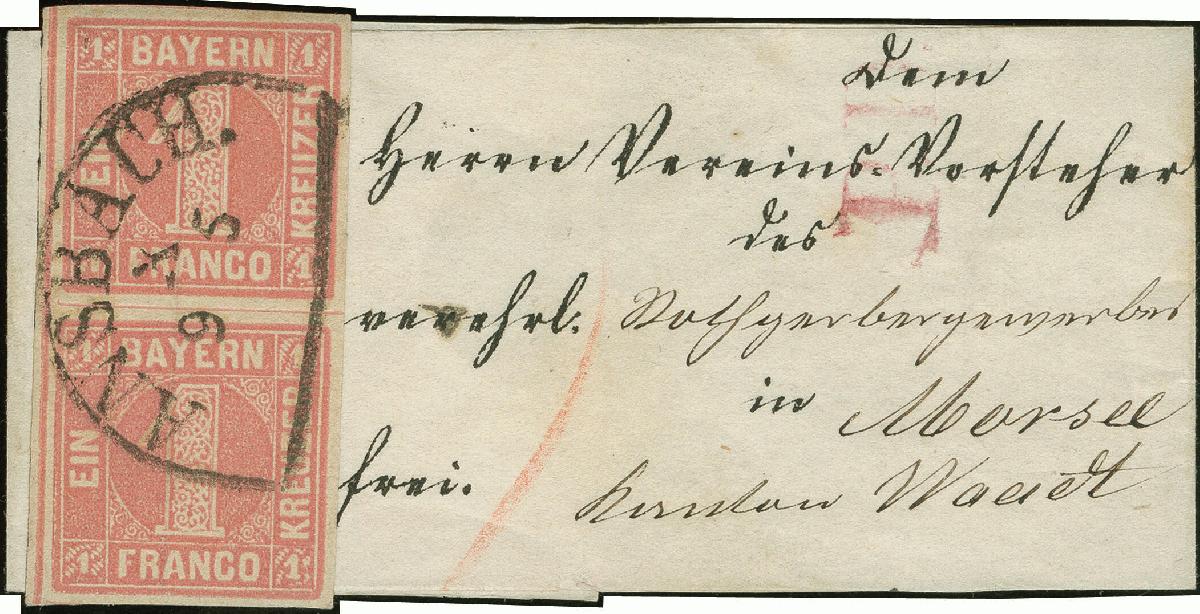 1 BAYERN 1
EIN 1 KREUZER
1 FRANCO 1
1 BAYERN 1
EIN 1 KREUZER
1 FRANCO 1
ANSBACH.
9 5
Dem
Herrn Vereins-Vorsteher
des
verehrl. Rothgerbergewerbes
in Morsee
frei. Kanton Waadt